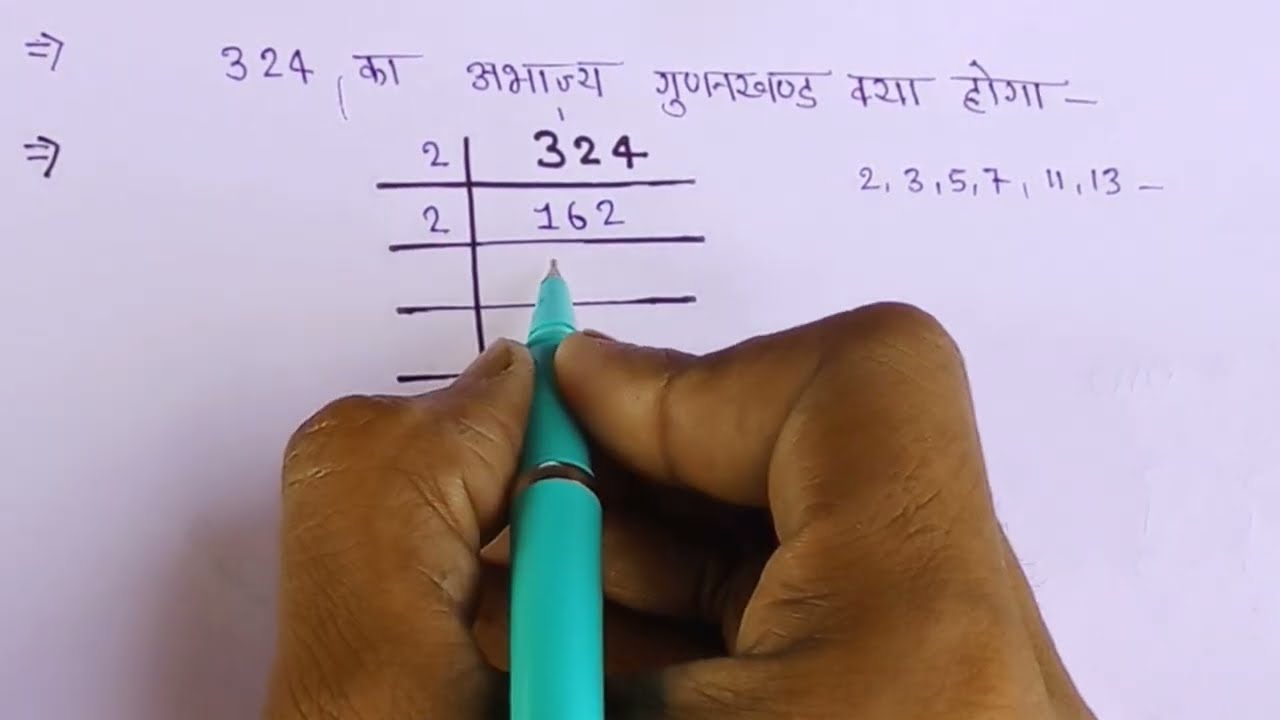 ⇒ 324 का अभाज्य गुणनखण्ड क्या होगा –
⇒ 2 324
2, 3, 5, 7, 11, 13 –
2 162